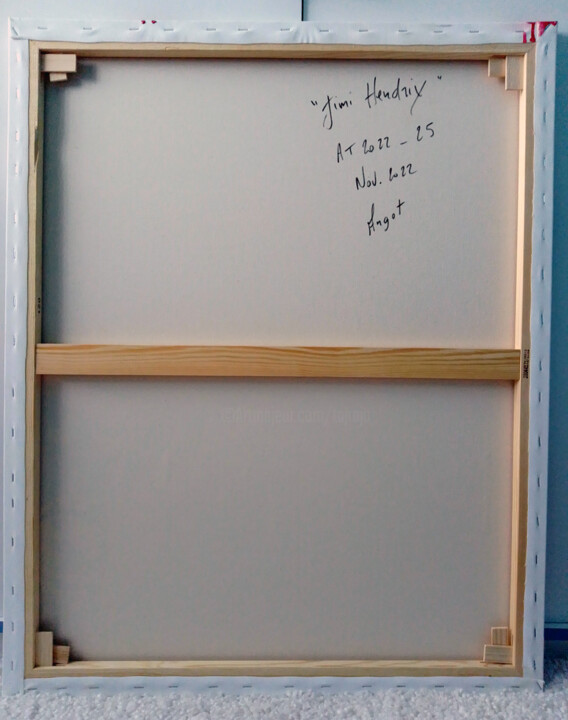 "Jimi Hendrix"
AT 2022 - 25
Nov. 2022
Angot